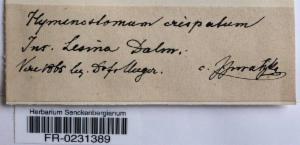 Hymenostomum crispatum
Ins. Lesina Dalm.
Vere 1865 leg. Dr. Unger.
c. Juratzka
Herbarium Senckenbergianum
FR-0231389